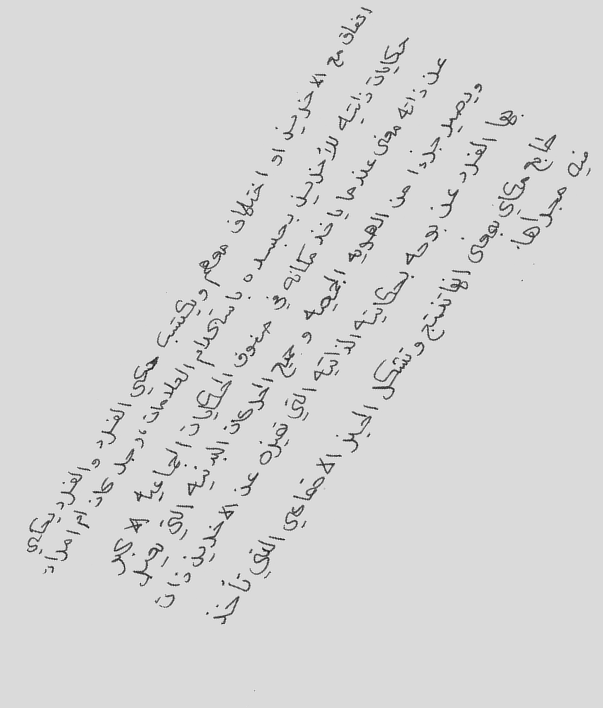 اتفاق مع الاخرين او اختلاف معهم ويكتسب حكي الفرد والفرد يحكي
حكايات ذاتية للأخرين بجسده باستخدام العلامات، رجلا كان ام امرأة
عن ذاته معنى عندما ياخذ مكانه في صفوف الحكايات الجماعية الاكبر
ويصير جزءا من الهوية الجمعية و جميع الحركات البدنية التي يعبر
بها الفرد عن بوحه بحكايته الذاتية التي تميزه عن الاخرين ذات
طابع حكاي بمعنى انها تنتج وتشكل الحيز الاجتماعي التي تأخذ
فيه مجراها.